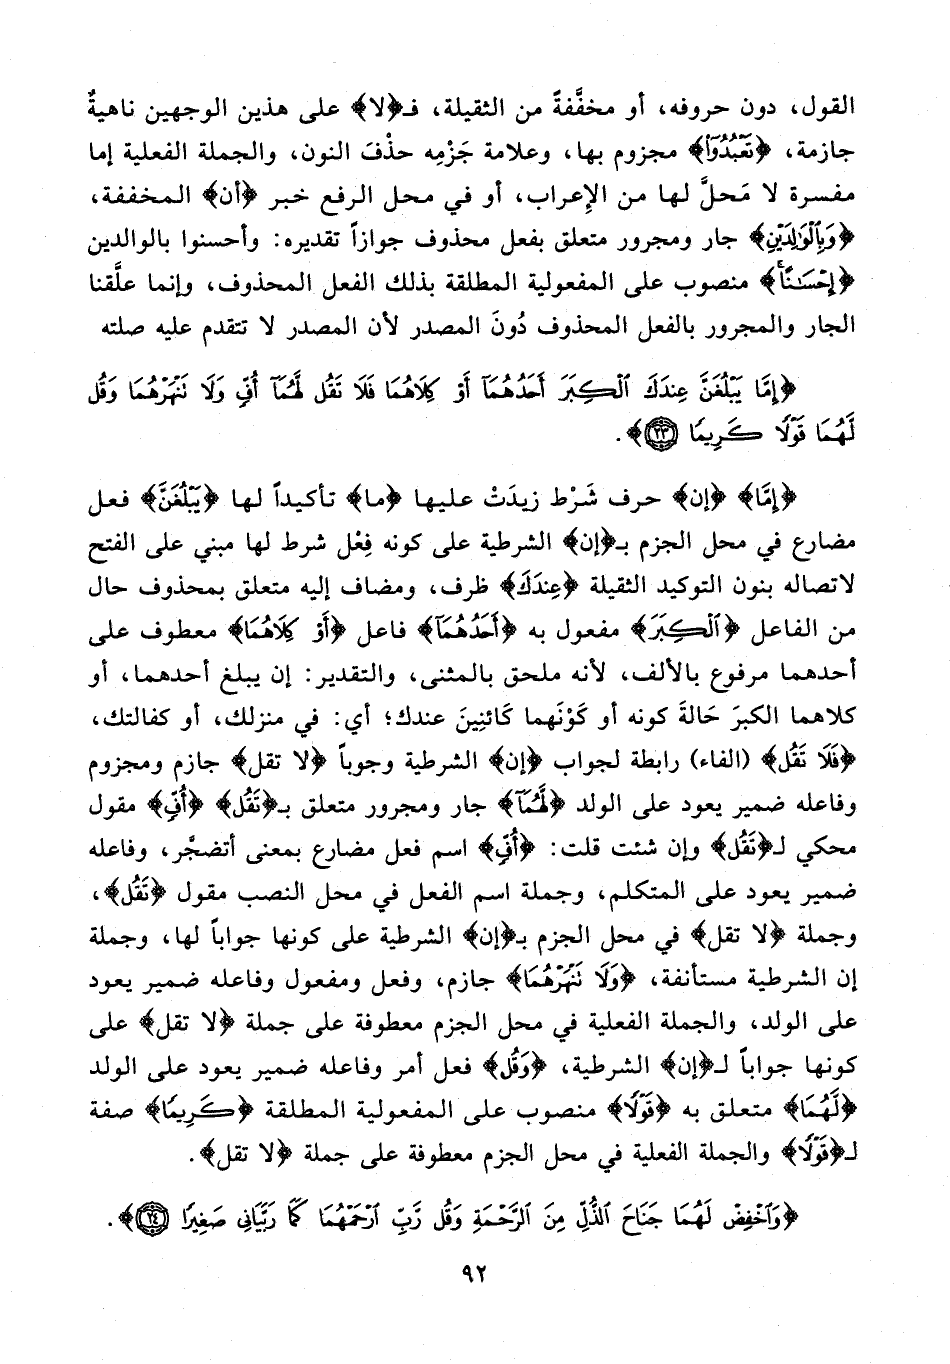 القول، دون حروفه، أو مخفَّفةً من الثقيلة، فـ﴿لا﴾ على هذين الوجهين ناهيةٌ
جازمة، ﴿تَعْبُدُوٓا۟﴾ مجزوم بها، وعلامة جَزْمِه حذْفَ النون، والجملة الفعلية إما
مفسرة لا مَحلَّ لها من الإِعراب، أو في محل الرفع خبر ﴿أن﴾ المخففة،
﴿وَبِٱلْوَٰلِدَيْنِ﴾ جار ومجرور متعلق بفعل محذوف جوازاً تقديره: وأحسنوا بالوالدين
﴿إِحْسَٰنًا ۚ﴾ منصوب على المفعولية المطلقة بذلك الفعل المحذوف، وإنما علَّقنا
الجار والمجرور بالفعل المحذوف دُونَ المصدر لأن المصدر لا تتقدم عليه صلته
﴿إِمَّا يَبْلُغَنَّ عِندَكَ ٱلْكِبَرَ أَحَدُهُمَآ أَوْ كِلَاهُمَا فَلَا تَقُل لَّهُمَآ أُفٍّ وَلَا نَنْهَرْهُمَا وَقُل
لَّهُمَا قَوْلًا كَرِيمًا ٢٣﴾.
﴿إِمَّا﴾ ﴿إن﴾ حرف شَرْط زيدَتْ عليها ﴿ما﴾ تأكيداً لها ﴿يَبْلُغَنَّ﴾ فعل
مضارع في محل الجزم بـ﴿إن﴾ الشرطية على كونه فِعْل شرط لها مبني على الفتح
لاتصاله بنون التوكيد الثقيلة ﴿عِندَكَ﴾ ظرف، ومضاف إليه متعلق بمحذوف حال
من الفاعل ﴿ٱلْكِبَرَ﴾ مفعول به ﴿أَحَدُهُمَآ﴾ فاعل ﴿أَوْ كِلَاهُمَا﴾ معطوف على
أحدهما مرفوع بالألف، لأنه ملحق بالمثنى، والتقدير: إن يبلغ أحدهما، أو
كلاهما الكبرَ حَالةَ كونه أو كَوْنَهما كَائنِينَ عندك؛ أي: في منزلك، أو كفالتك،
﴿فَلَا تَقُل﴾ (الفاء) رابطة لجواب ﴿إن﴾ الشرطية وجوباً ﴿لا تقل﴾ جازم ومجزوم
وفاعله ضمير يعود على الولد ﴿لَّهُمَآ﴾ جار ومجرور متعلق بـ﴿تَقُل﴾ ﴿أُفٍّ﴾ مقول
محكي لـ﴿تَقُل﴾ وإن شئت قلت: ﴿أُفٍّ﴾ اسم فعل مضارع بمعنى أتضجَّر، وفاعله
ضمير يعود على المتكلم، وجملة اسم الفعل في محل النصب مقول ﴿تَقُل﴾،
وجملة ﴿لا تقل﴾ في محل الجزم بـ﴿إن﴾ الشرطية على كونها جواباً لها، وجملة
إن الشرطية مستأنفة، ﴿وَلَا نَنْهَرْهُمَا﴾ جازم، وفعل ومفعول وفاعله ضمير يعود
على الولد، والجملة الفعلية في محل الجزم معطوفة على جملة ﴿لا تقل﴾ على
كونها جواباً لـ﴿إن﴾ الشرطية، ﴿وَقُل﴾ فعل أمر وفاعله ضمير يعود على الولد
﴿لَّهُمَا﴾ متعلق به ﴿قَوْلًا﴾ منصوب على المفعولية المطلقة ﴿كَرِيمًا﴾ صفة
لـ﴿قَوْلًا﴾ والجملة الفعلية في محل الجزم معطوفة على جملة ﴿لا تقل﴾.
﴿وَٱخْفِضْ لَهُمَا جَنَاحَ ٱلذُّلِّ مِنَ ٱلرَّحْمَةِ وَقُل رَّبِّ ٱرْحَمْهُمَا كَمَا رَبَّيَانِى صَغِيرًا ٢٤﴾.
٩٢